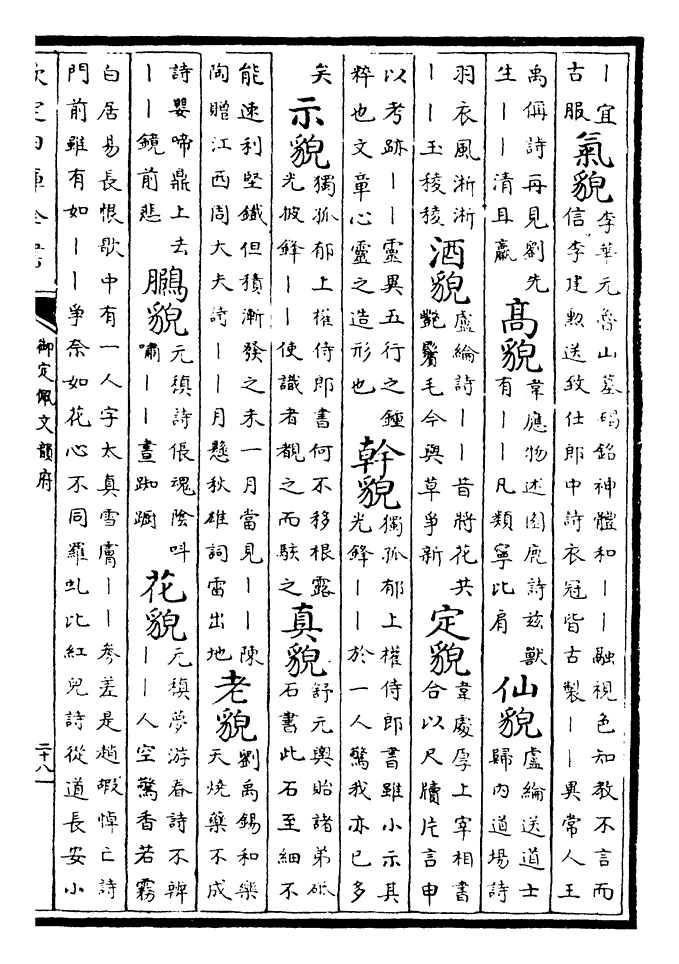 ｜宜古服氣貌李華元魯山墓碣銘神體和｜｜融視色知教不言而信李建勲送致仕郎中詩衣冠皆古製｜｜異常人王
禹偁詩再見劉先生｜｜清且羸髙貌韋應物述園鹿詩兹獸有｜｜凡類寧比肩仙貌盧綸送道士歸内道場詩
羽衣風淅淅｜｜玉稜稜洒貌盧綸詩｜｜昔將花共艷鬢毛今與草爭新定貌韋處厚上宰相書合以尺牘片言申
以考跡｜｜靈異五行之鍾粹也文章心靈之造形也幹貌獨孤郁上權侍郎書雖小示其光鋒｜｜於一人驚我亦已多
矣示貌獨孤郁上權侍郎書何不移根露光披鋒｜｜使識者覩之而駭之真貌舒元輿貽諸弟砥石書此石至細不
能速利堅鐵但積漸發之未一月當見｜｜陳陶贈江西周大夫詩｜｜月懸秋雄詞雷出地老貌劉禹錫和樂天燒藥不成
詩嬰啼鼎上去｜｜鏡前悲鵩貌元稹詩倀魂陰叫嘯｜｜晝踟躕花貌元稹夢游春詩不辨｜｜人空驚香若霧
白居易長恨歌中有一人字太真雪膚｜｜參差是趙嘏悼亡詩門前雖有如｜｜爭奈如花心不同羅虬比紅兒詩從道長安小
欽定四庫全書
御定佩文韻府
二十八